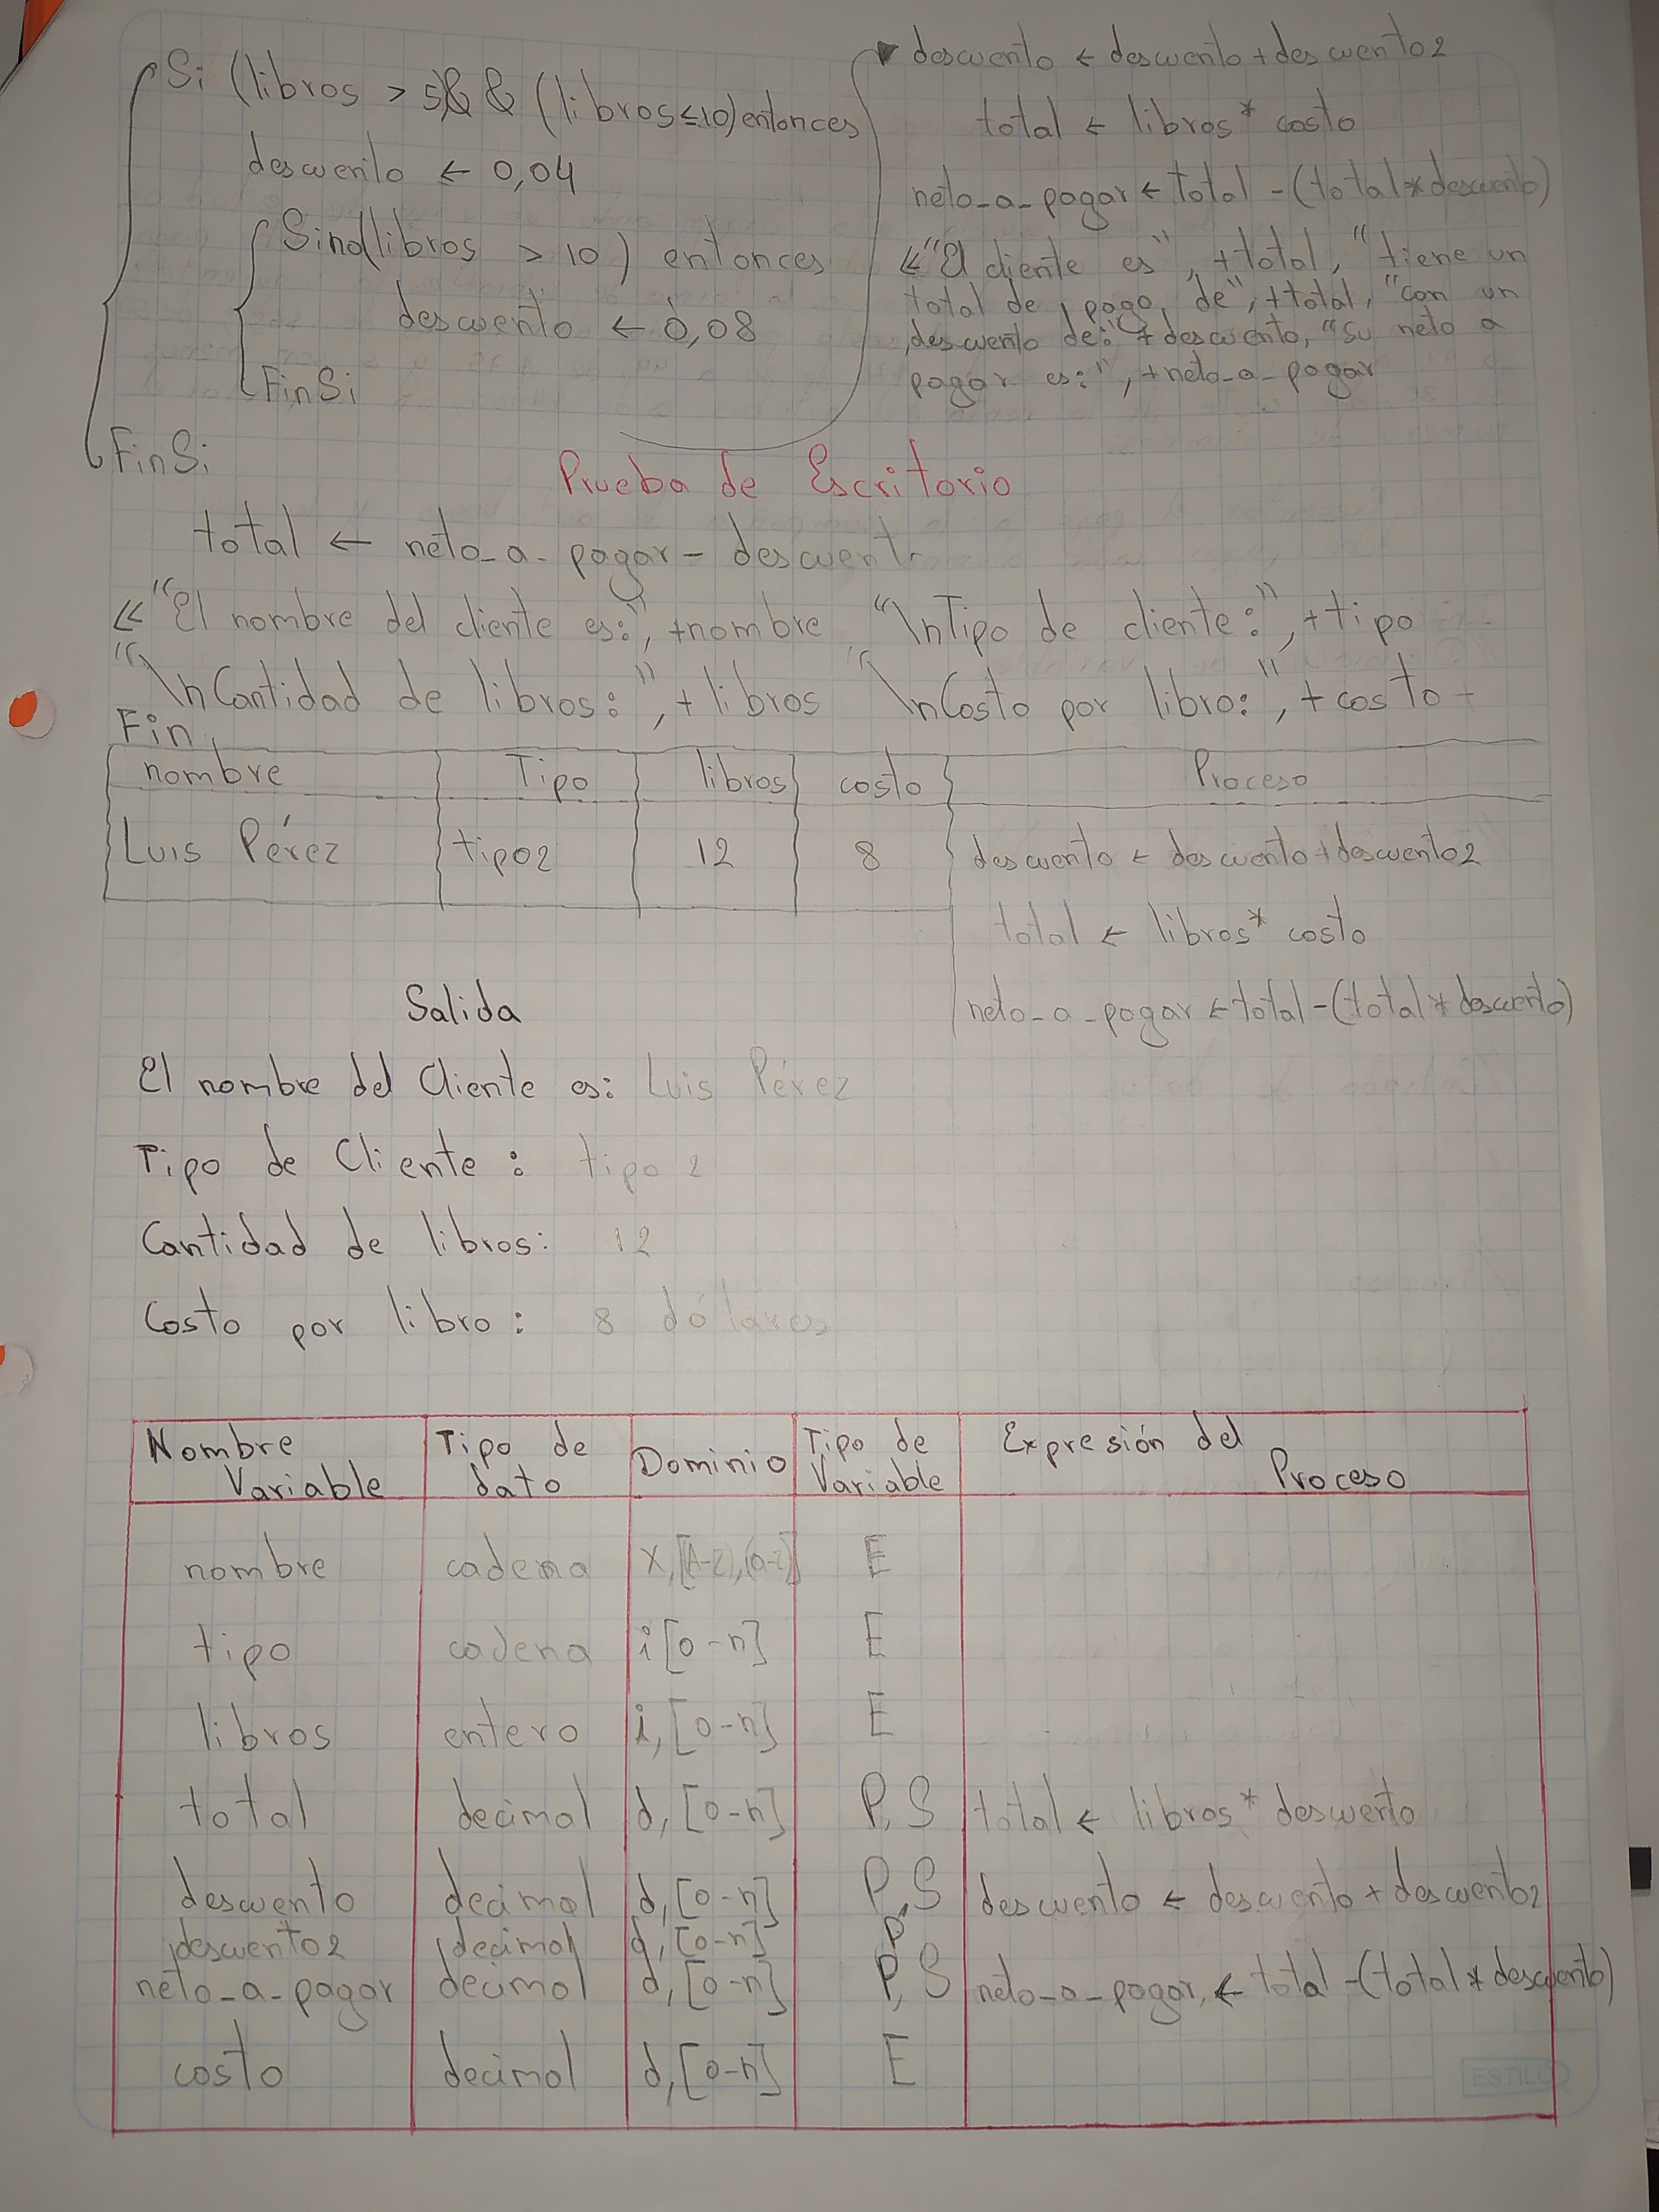 Si (libros > 5)&& (libros≤10) entonces
descuento ← 0,04
Sino(libros > 10) entonces
descuento ← 0,08
FinSi
FinSi
descuento ← descuento + descuento2
total ← libros * costo
neto_a_pagar ← total - (total * descuento)
≪ "El cliente es", +total, "tiene un
total de pago de", +total, "con un
descuento de:" + descuento, "su neto a
pagar es:", +neto_a_pagar
Prueba de Escritorio
total ← neto_a_pagar - descuento
≪ "El nombre del cliente es:", +nombre "\nTipo de cliente:", +tipo
"\nCantidad de libros:", + libros "\nCosto por libro:", + costo
Fin
nombre Tipo libros costo Proceso
Luis Pérez tipo2 12 8 descuento ← descuento + descuento2
total ← libros * costo
neto_a_pagar ← total - (total * descuento)
Salida
El nombre del Cliente es: Luis Pérez
Tipo de Cliente: tipo 2
Cantidad de libros: 12
Costo por libro: 8 dólares
Nombre Variable Tipo de dato Dominio Tipo de Variable Expresión del Proceso
nombre cadena x, [(A-Z), (a-z)] E
tipo cadena i [0-n] E
libros entero i, [0-n] E
total decimal d, [0-n] P, S total ← libros * descuento
descuento decimal d, [0-n] P, S descuento ← descuento + descuento2
descuento2 decimal d, [0-n] P
neto_a_pagar decimal d, [0-n] P, S neto_a_pagar ← total - (total * descuento)
costo decimal d, [0-n] E
ESTILO